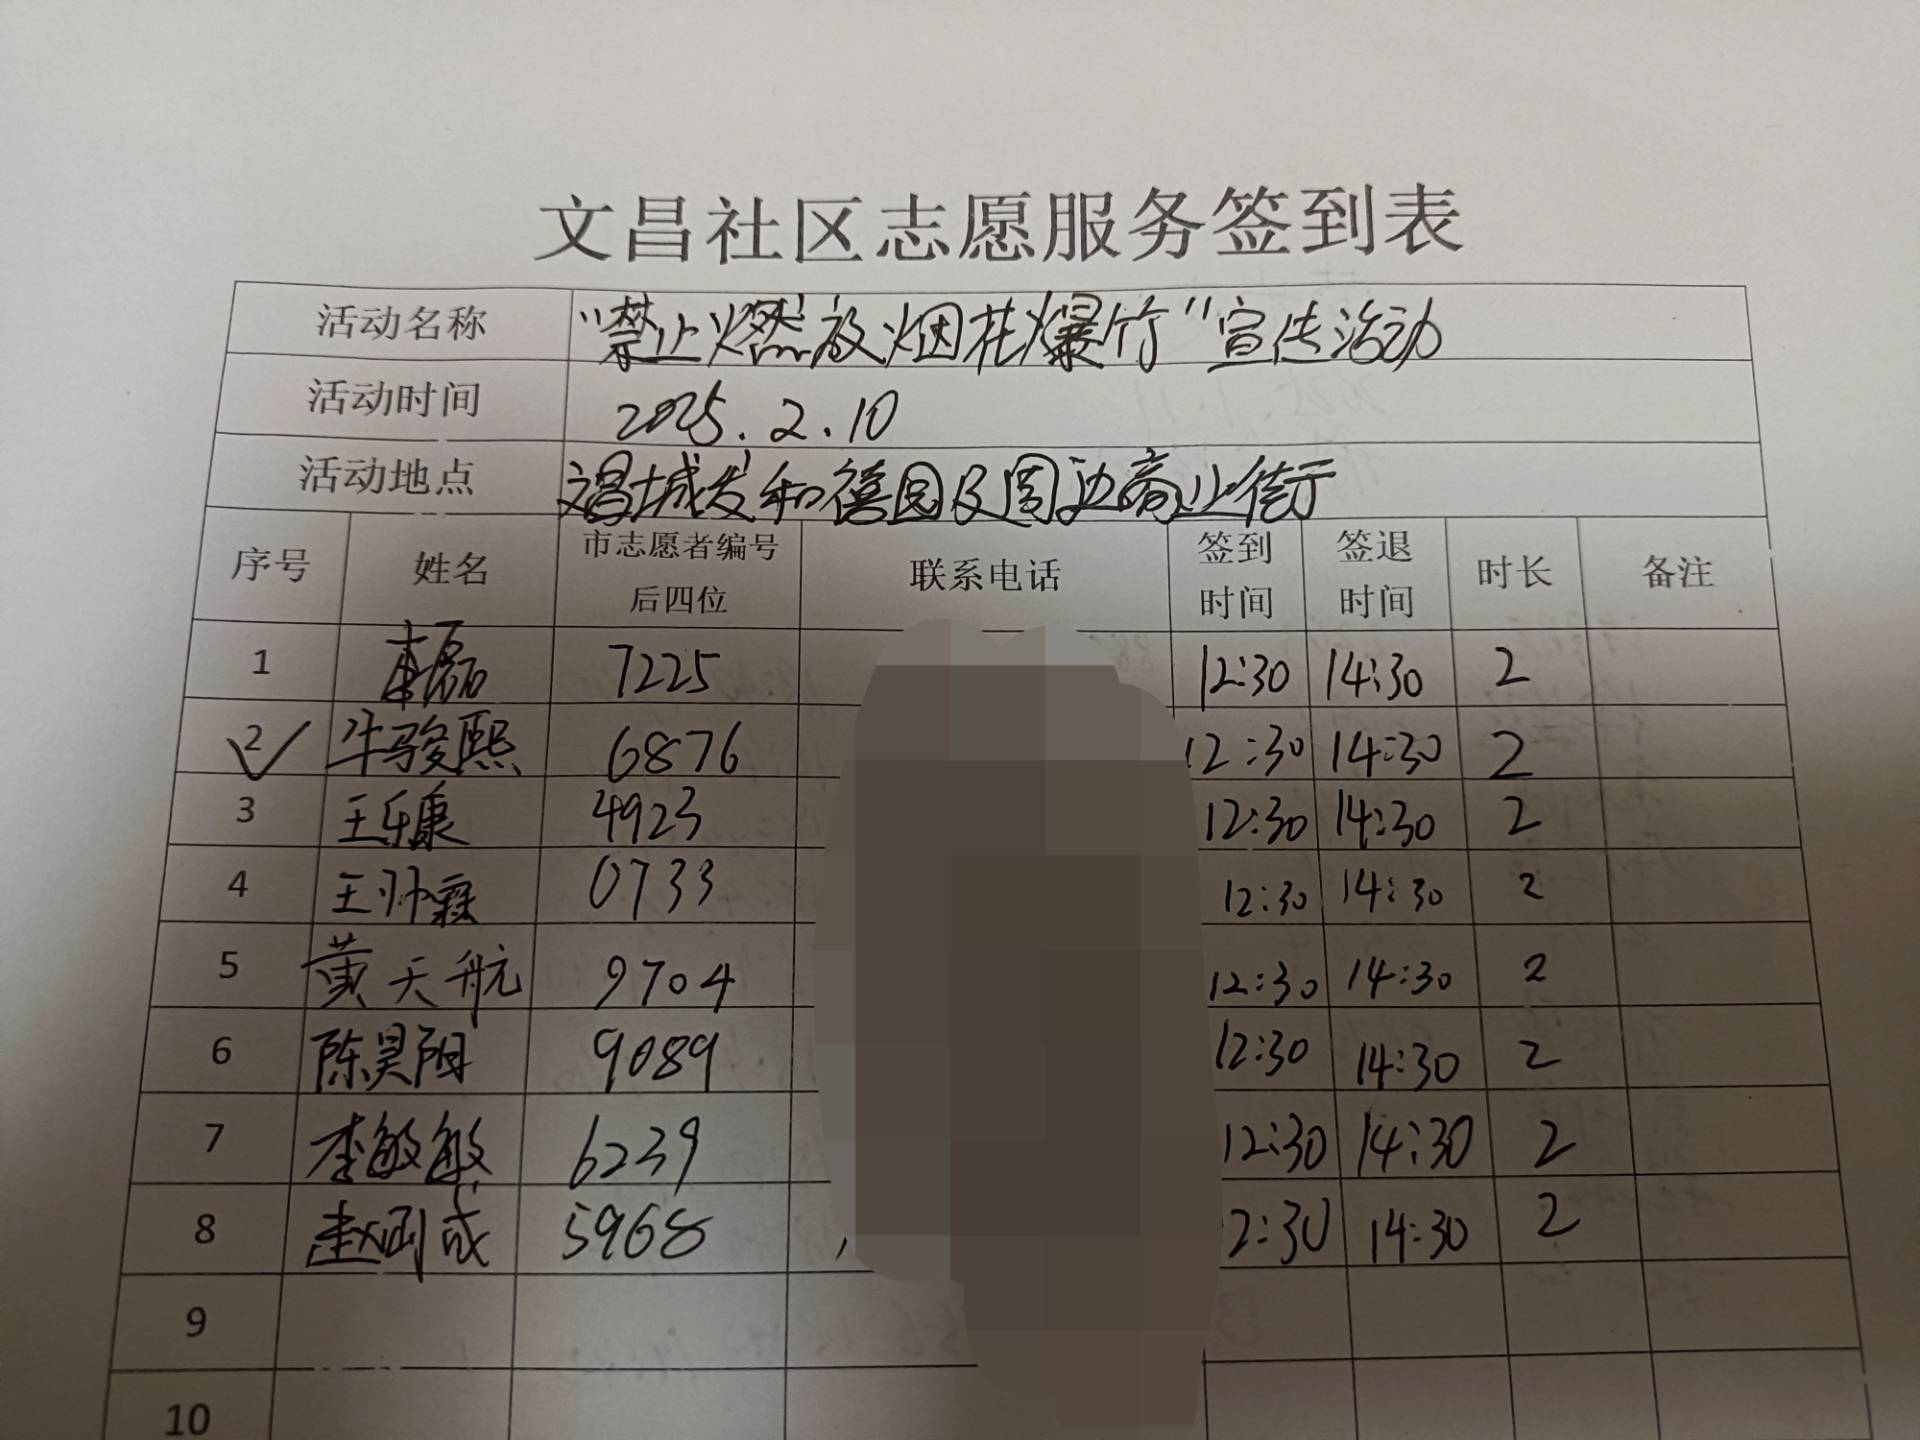 文昌社区志愿服务签到表
活动名称 "禁止燃放烟花爆竹"宣传活动
活动时间 2025.2.10
活动地点 文昌城发和德园及周边商业街
序号 姓名 市志愿者编号后四位 联系电话 签到时间 签退时间 时长 备注
1 李磊 7225 12:30 14:30 2
2 牛骏熙 6876 12:30 14:30 2
3 王乐康 4923 12:30 14:30 2
4 王帅 0733 12:30 14:30 2
5 黄天航 9704 12:30 14:30 2
6 陈昊阳 9089 12:30 14:30 2
7 李敏敏 6239 12:30 14:30 2
8 赵 成 5968 2:30 14:30 2
9
10